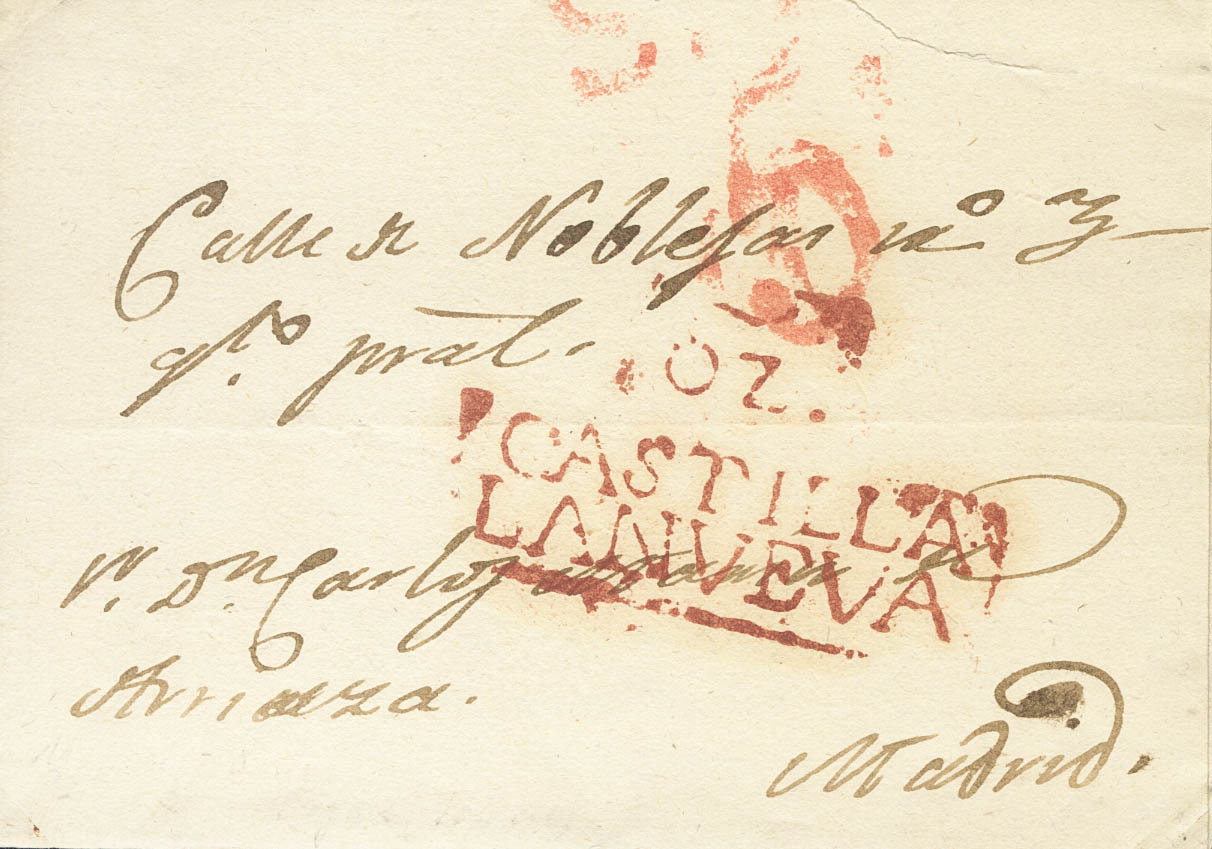 Calle de Noblejas nº 7
qtº pral.
OZ.
CASTILLA
LANUEVA
Sr. Dn. Carlos
Arriaza.
Madrid.